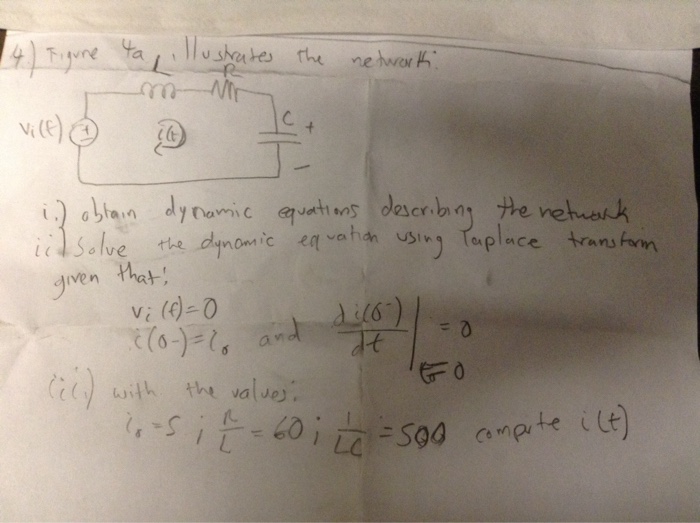 4) Figure 4a illustrates the network:
L R
vi(t) i(t) C +
−
i.) obtain dynamic equations describing the network
ii) Solve the dynamic equation using Laplace transform
given that:
vi(t)=0
i(0-)=i0 and di(0-)/dt | t=0 = 0
(iii) with the values:
i0=5 ; R/L = 60 ; 1/LC = 500 compute i(t)